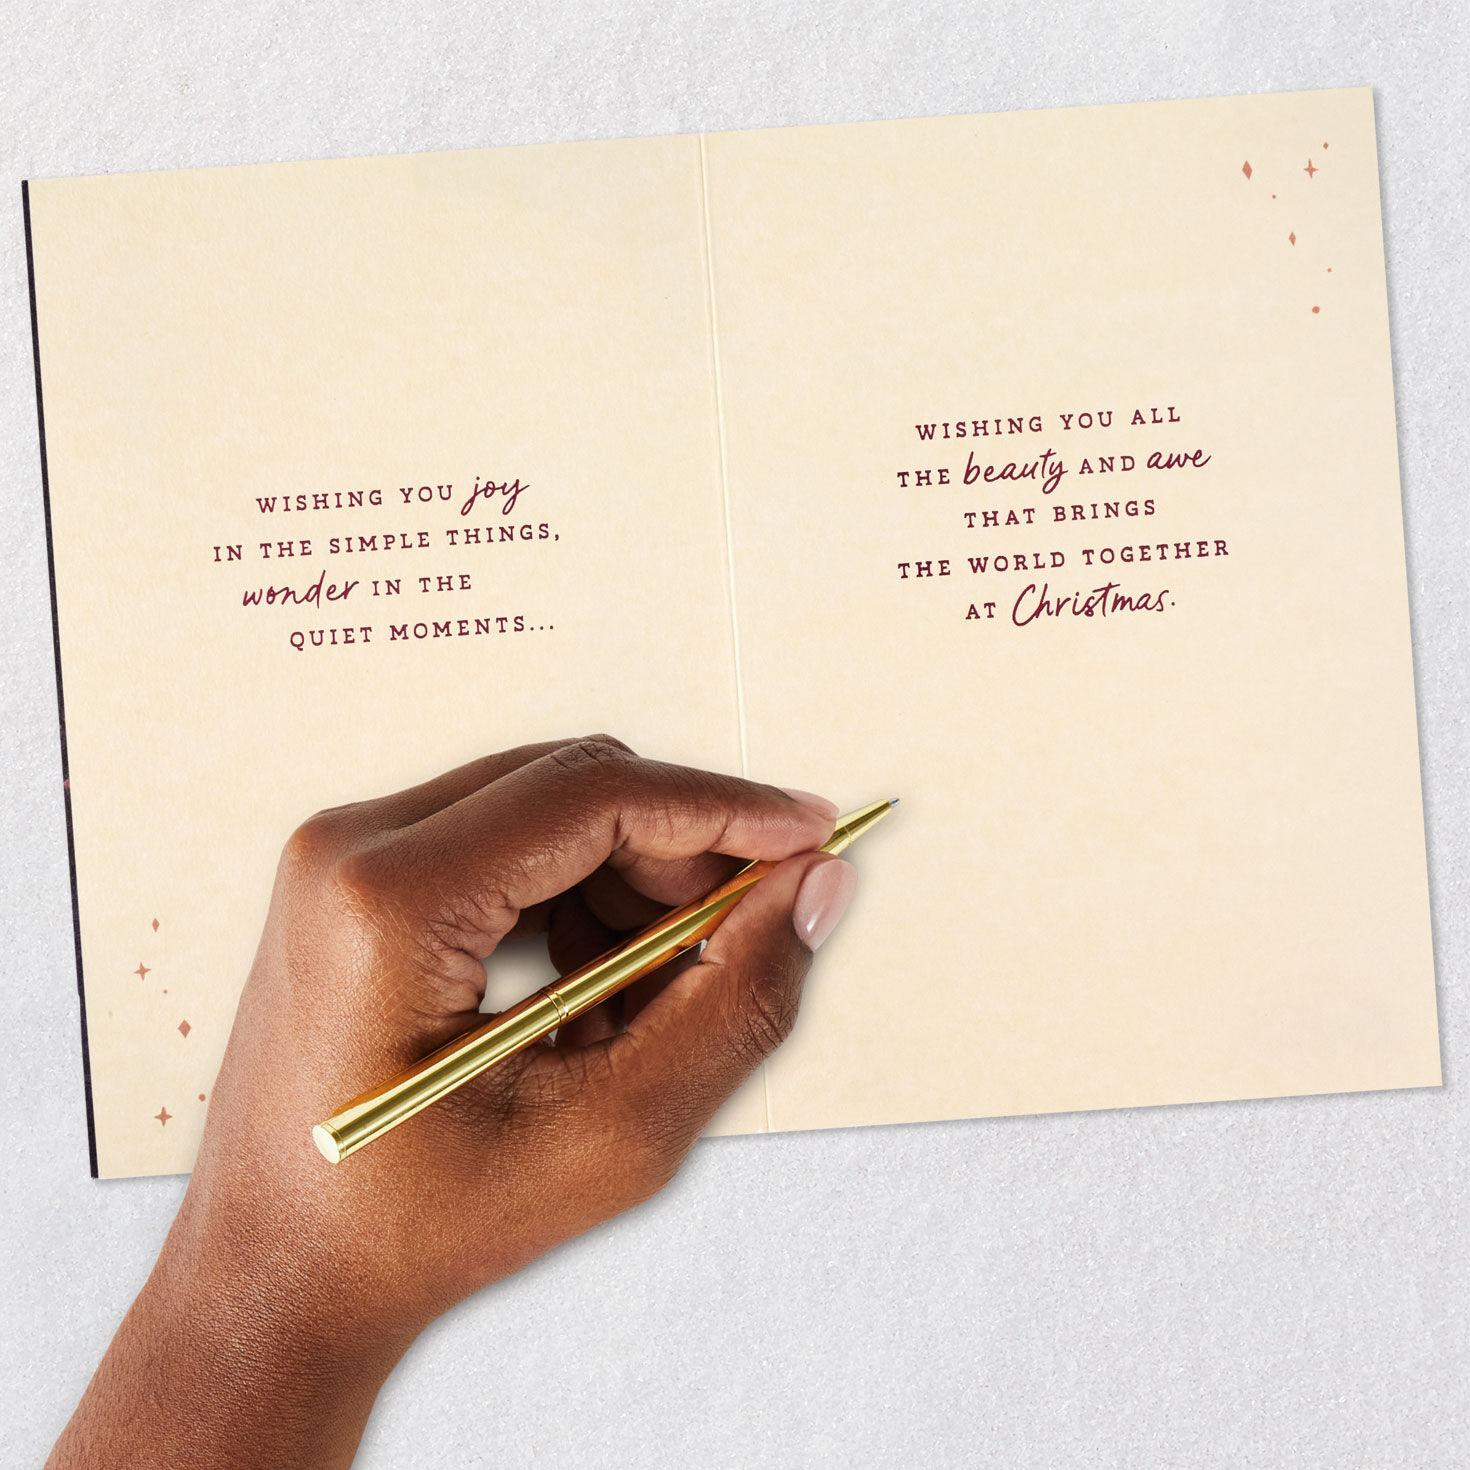 WISHING YOU joy
IN THE SIMPLE THINGS,
wonder IN THE
QUIET MOMENTS...
WISHING YOU ALL
THE beauty AND awe
THAT BRINGS
THE WORLD TOGETHER
AT Christmas.